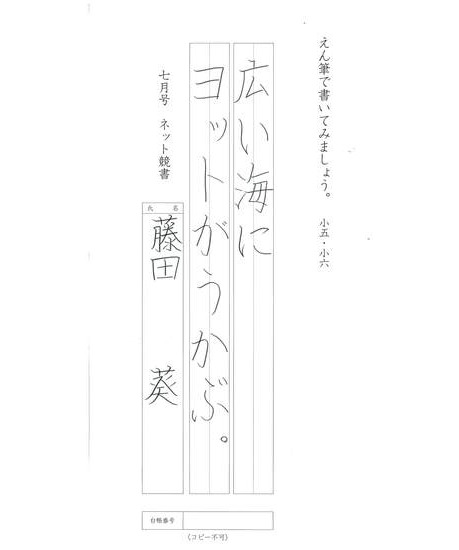 えん筆で書いてみましょう。 小五・小六
広い海に
ヨットがうかぶ。
七月号 ネット競書
氏名
藤田 葵
台帳番号
(コピー不可)